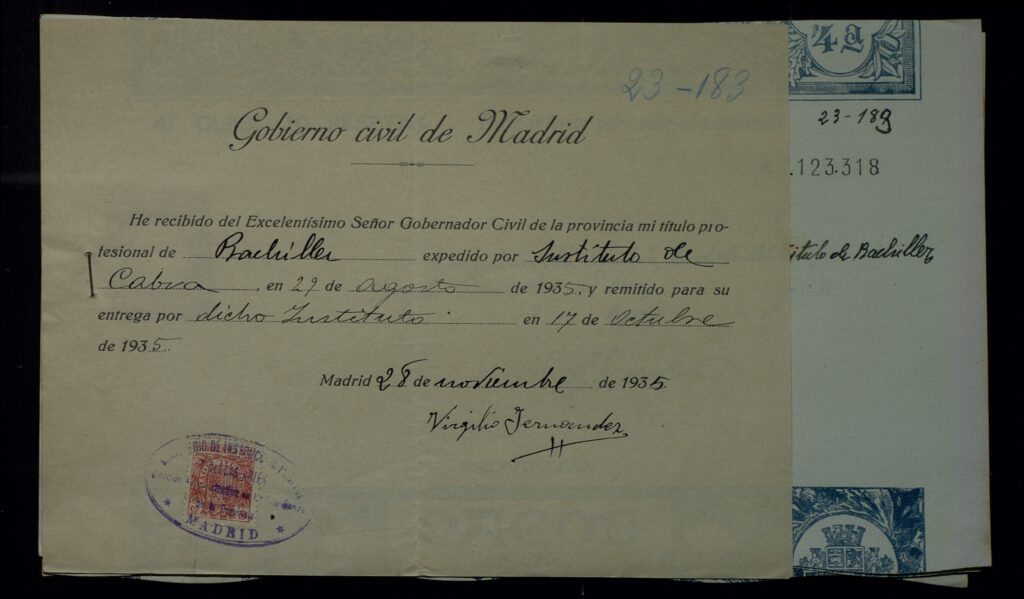 23-183
Gobierno civil de Madrid
He recibido del Excelentísimo Señor Gobernador Civil de la provincia mi título pro-
fesional de Bachiller expedido por Instituto de
Cabra, en 29 de agosto de 1935, y remitido para su
entrega por dicho Instituto en 17 de Octubre
de 1935.
Madrid 28 de noviembre de 1935.
Virgilio Fernández
DE INSTRUC
BELLAS ARTES
MADRID
4a
23-183
.123.318
tituto de Bachiller